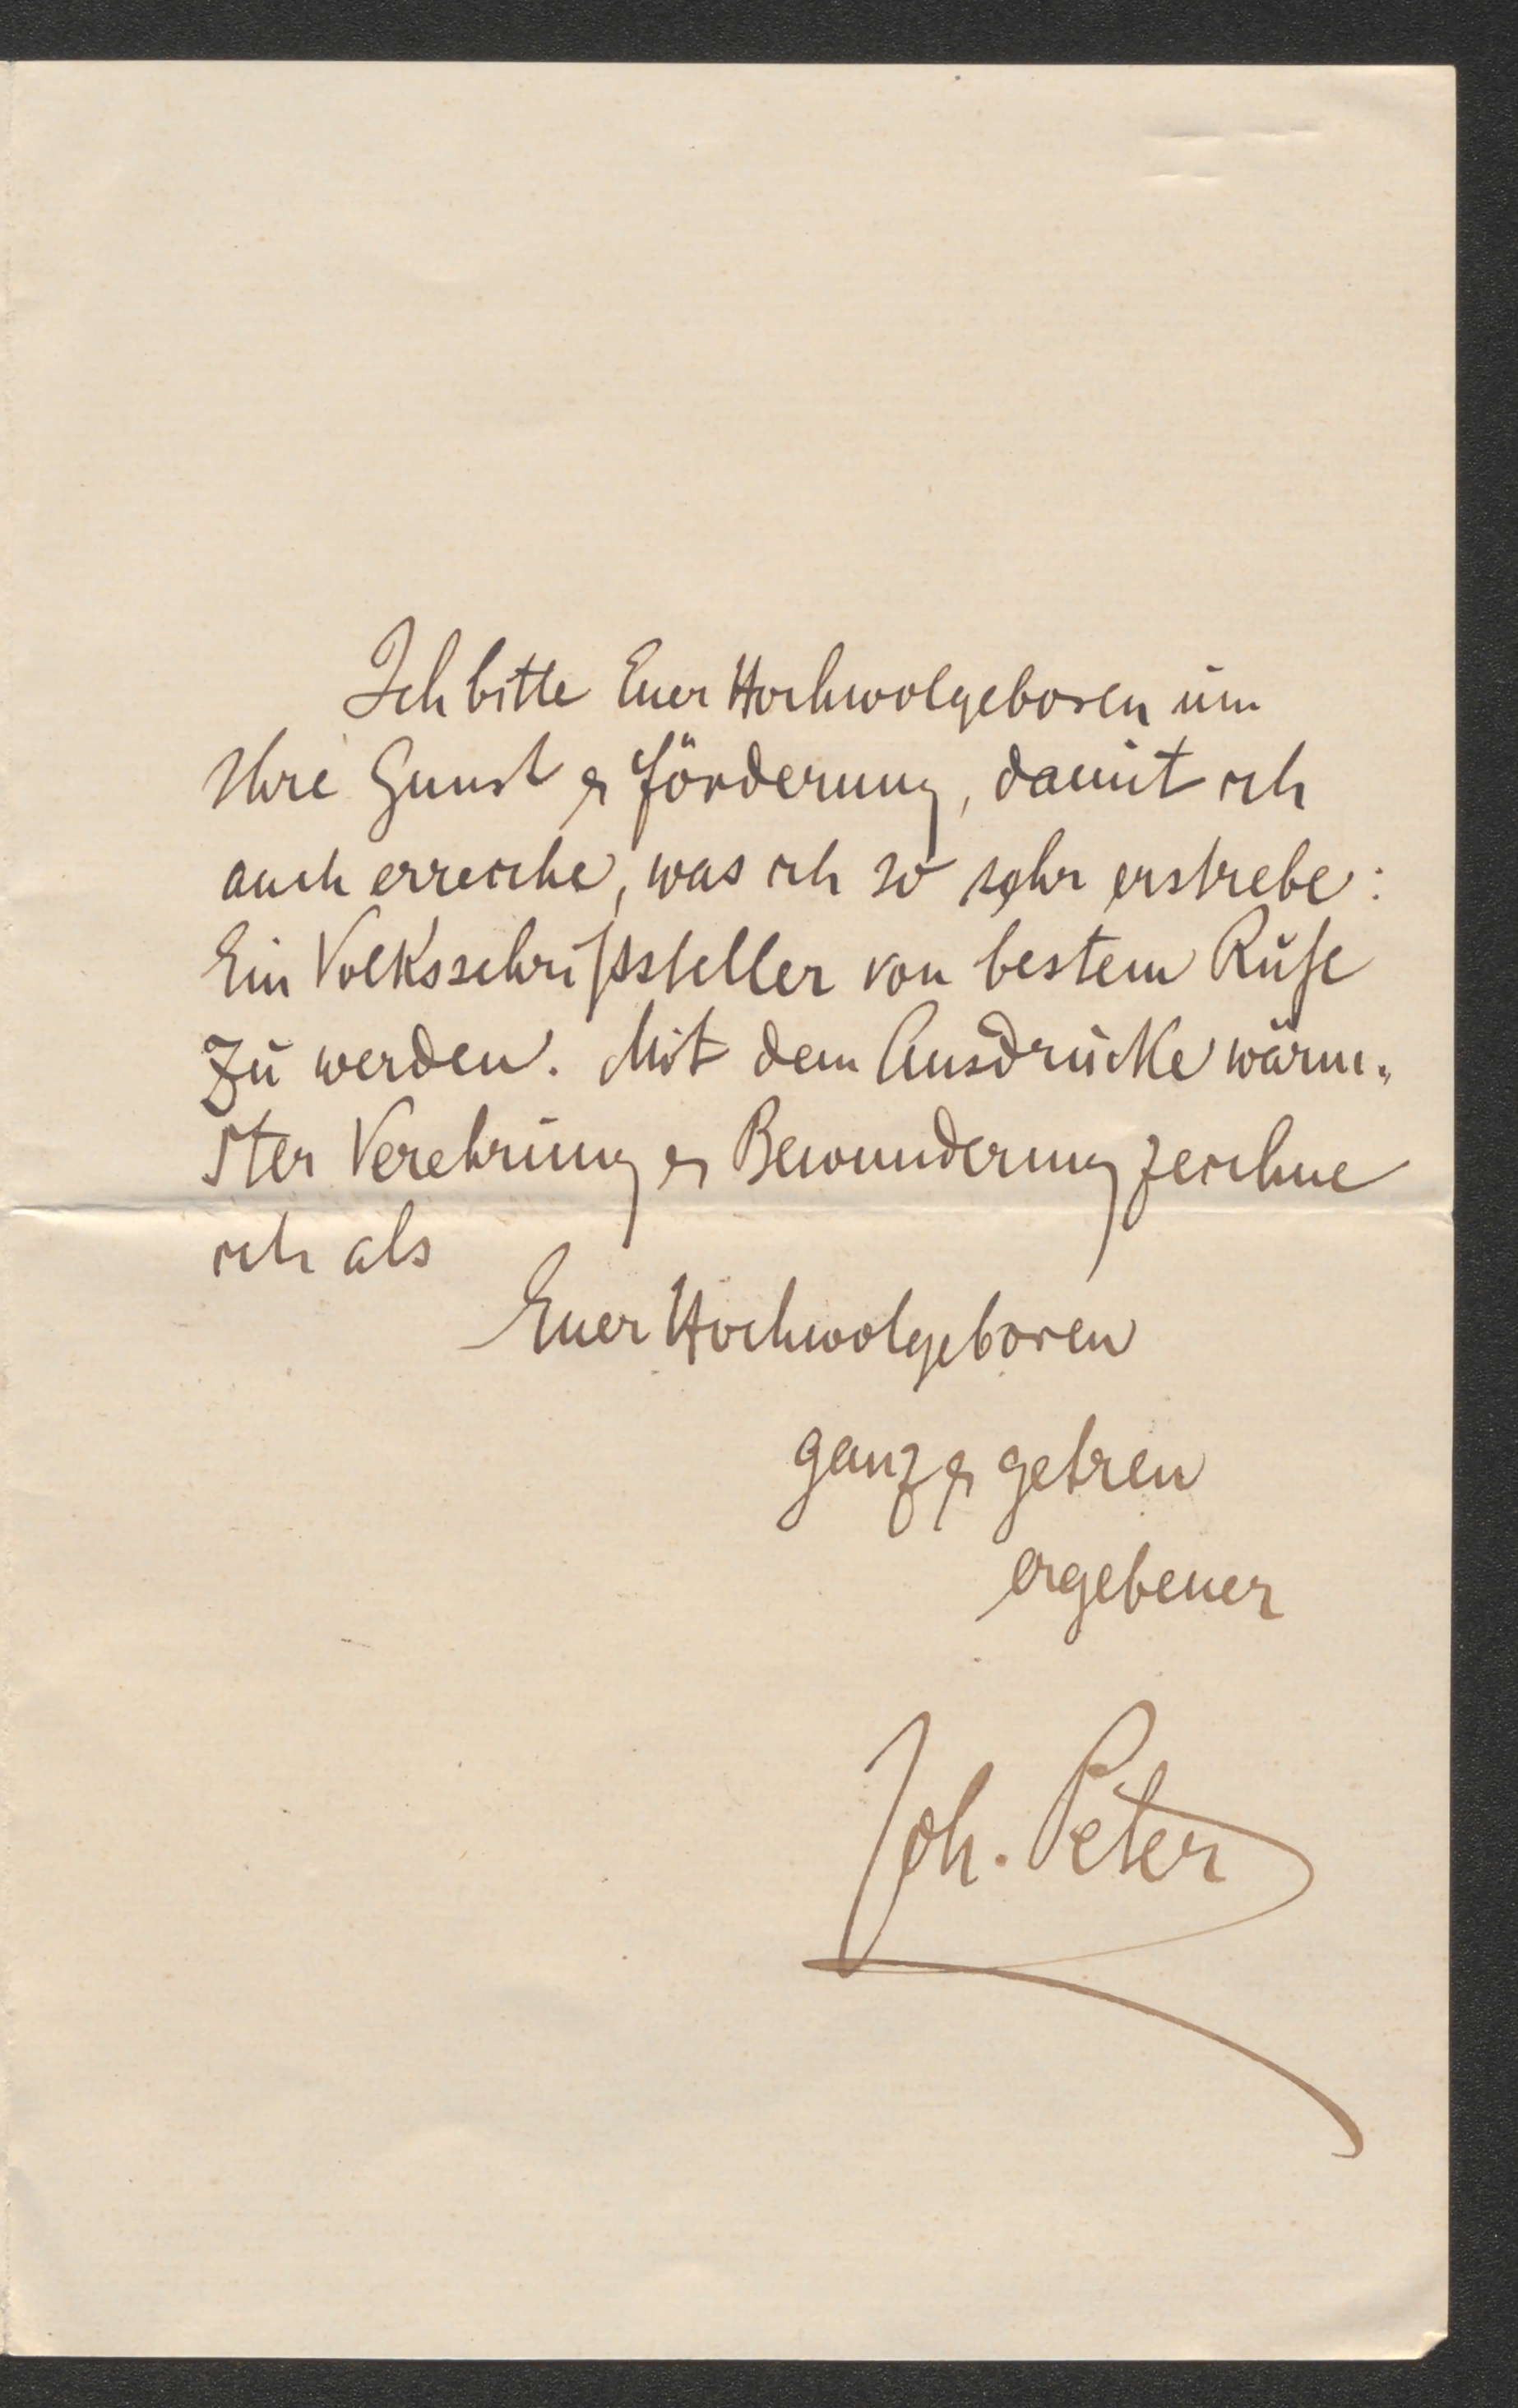 Ich bitte Euer Hochwolgeboren um
Ihre Gunst & Förderung, damit ich
auch erreiche, was ich so sehr erstrebe:
Ein Volksschriftsteller von bestem Rufe
zu werden. Mit dem Ausdrucke wärm„
ster Verehrung & Bewunderung zeichne
ich als
Euer Hochwolgeboren
ganz & getreu
ergebener
Joh. Peter